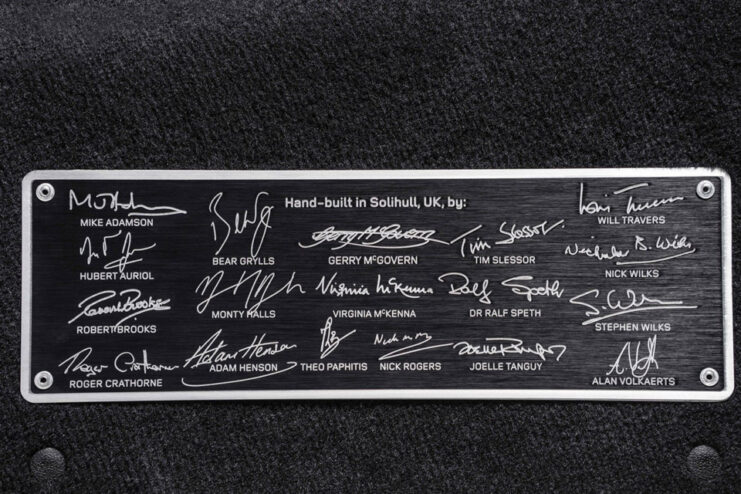 Hand-built in Solihull, UK, by:
MIKE ADAMSON
BEAR GRYLLS
GERRY McGOVERN
TIM SLESSOR
WILL TRAVERS
HUBERT AURIOL
NICK WILKS
ROBERT BROOKS
MONTY HALLS
VIRGINIA McKENNA
DR RALF SPETH
STEPHEN WILKS
ROGER CRATHORNE
ADAM HENSON
THEO PAPHITIS
NICK ROGERS
JOELLE TANGUY
ALAN VOLKAERTS